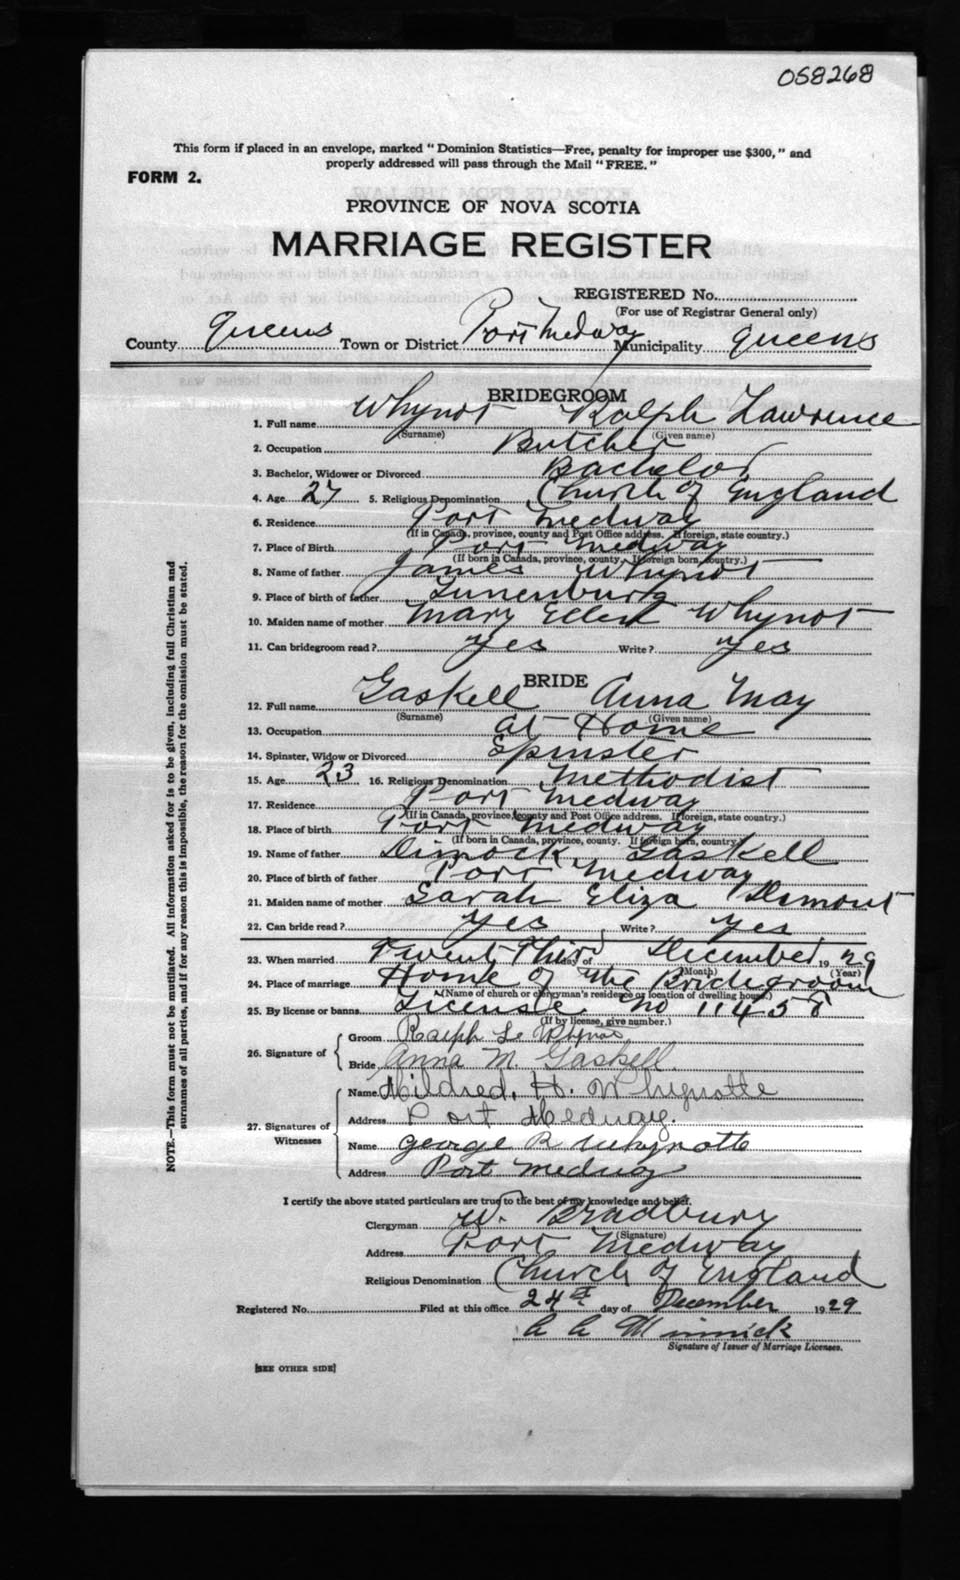 058268
This form if placed in an envelope, marked "Dominion Statistics—Free, penalty for improper use $300," and
properly addressed will pass through the Mail "FREE."
FORM 2.
PROVINCE OF NOVA SCOTIA
MARRIAGE REGISTER
REGISTERED No.
(For use of Registrar General only)
County Queens Town or District Port Medway Municipality Queens
BRIDEGROOM
1. Full name Whynot Ralph Lawrence
(Surname) (Given name)
2. Occupation Butcher
3. Bachelor, Widower or Divorced Bachelor
4. Age 27 5. Religious Denomination Church of England
6. Residence Port Medway
(If in Canada, province, county and Post Office address. If foreign, state country.)
7. Place of Birth Port Medway
(If born in Canada, province, county. If foreign born, country.)
8. Name of father James Whynot
9. Place of birth of father Lunenburg
10. Maiden name of mother Mary Ellen Whynot
11. Can bridegroom read? yes Write? yes
BRIDE
12. Full name Gaskell Anna May
(Surname) (Given name)
13. Occupation at Home
14. Spinster, Widow or Divorced Spinster
15. Age 23 16. Religious Denomination Methodist
17. Residence Port Medway
(If in Canada, province, county and Post Office address. If foreign, state country.)
18. Place of birth Port Medway
(If born in Canada, province, county. If foreign born, country.)
19. Name of father Dimock Gaskell
20. Place of birth of father Port Medway
21. Maiden name of mother Sarah Eliza
22. Can bride read? yes Write? yes
23. When married Twenty Third day of December 1929
(Month) (Year)
24. Place of marriage Home of the Bridegroom
(Name of church or clergyman's residence or location of dwelling house.)
25. By license or banns License no 11458
(If by license, give number.)
26. Signature of
Groom Ralph L Whynot
Bride Anna M. Gaskell.
27. Signatures of Witnesses
Name Mildred. H. Whynotte
Address Port Medway.
Name George R Whynotte
Address Port Medway
I certify the above stated particulars are true to the best of my knowledge and belief.
Clergyman W. Bradbury
(Signature)
Address Port Medway
Religious Denomination Church of England
Registered No. Filed at this office 24th day of December 1929
Minnick
Signature of Issuer of Marriage Licenses.
[SEE OTHER SIDE]
NOTE.—This form must not be mutilated. All information asked for is to be given, including full Christian and
surnames of all parties, and if for any reason this is impossible, the reason for the omission must be stated.